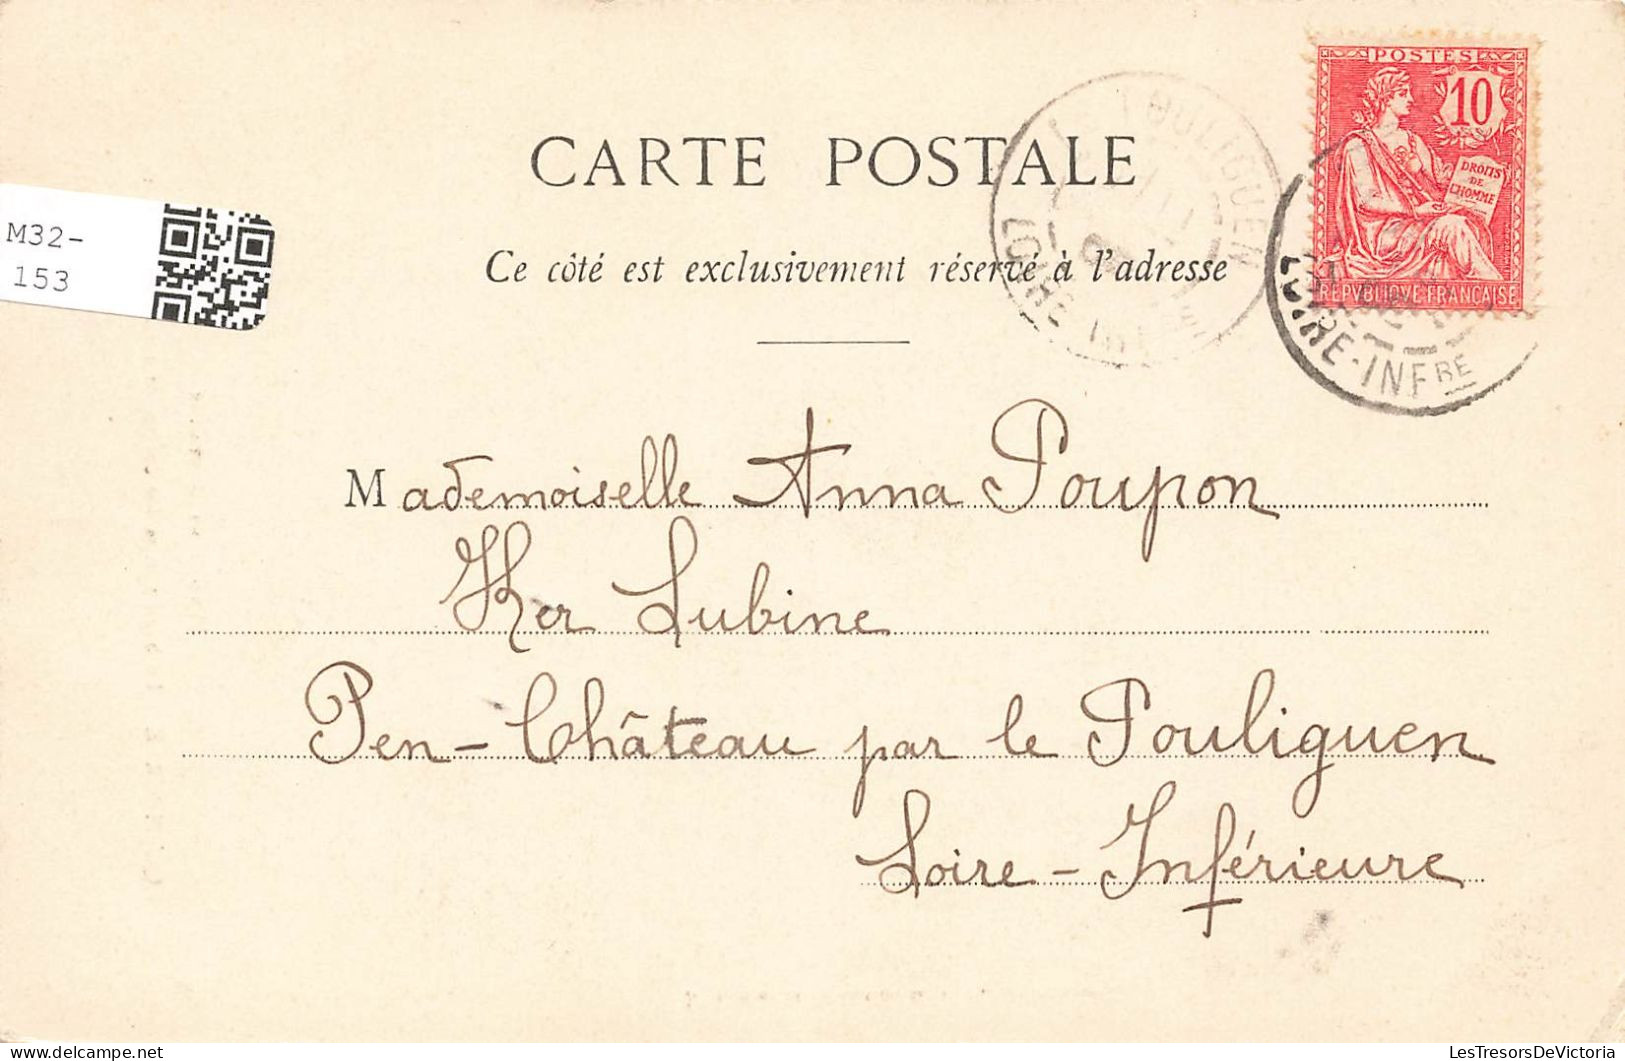 POSTES
10
DROITS
DE
L'HOMME
REPVBLIQVE FRANÇAISE
CARTE POSTALE
Ce côté est exclusivement réservé à l'adresse
POULIGUEN
LOIRE INF
LOIRE-INFRE
M32-
153
Mademoiselle Anna Poupon
Ker Lubine
Pen-Château par le Pouliguen
Loire-Inférieure
LesTresorsDeVictoria